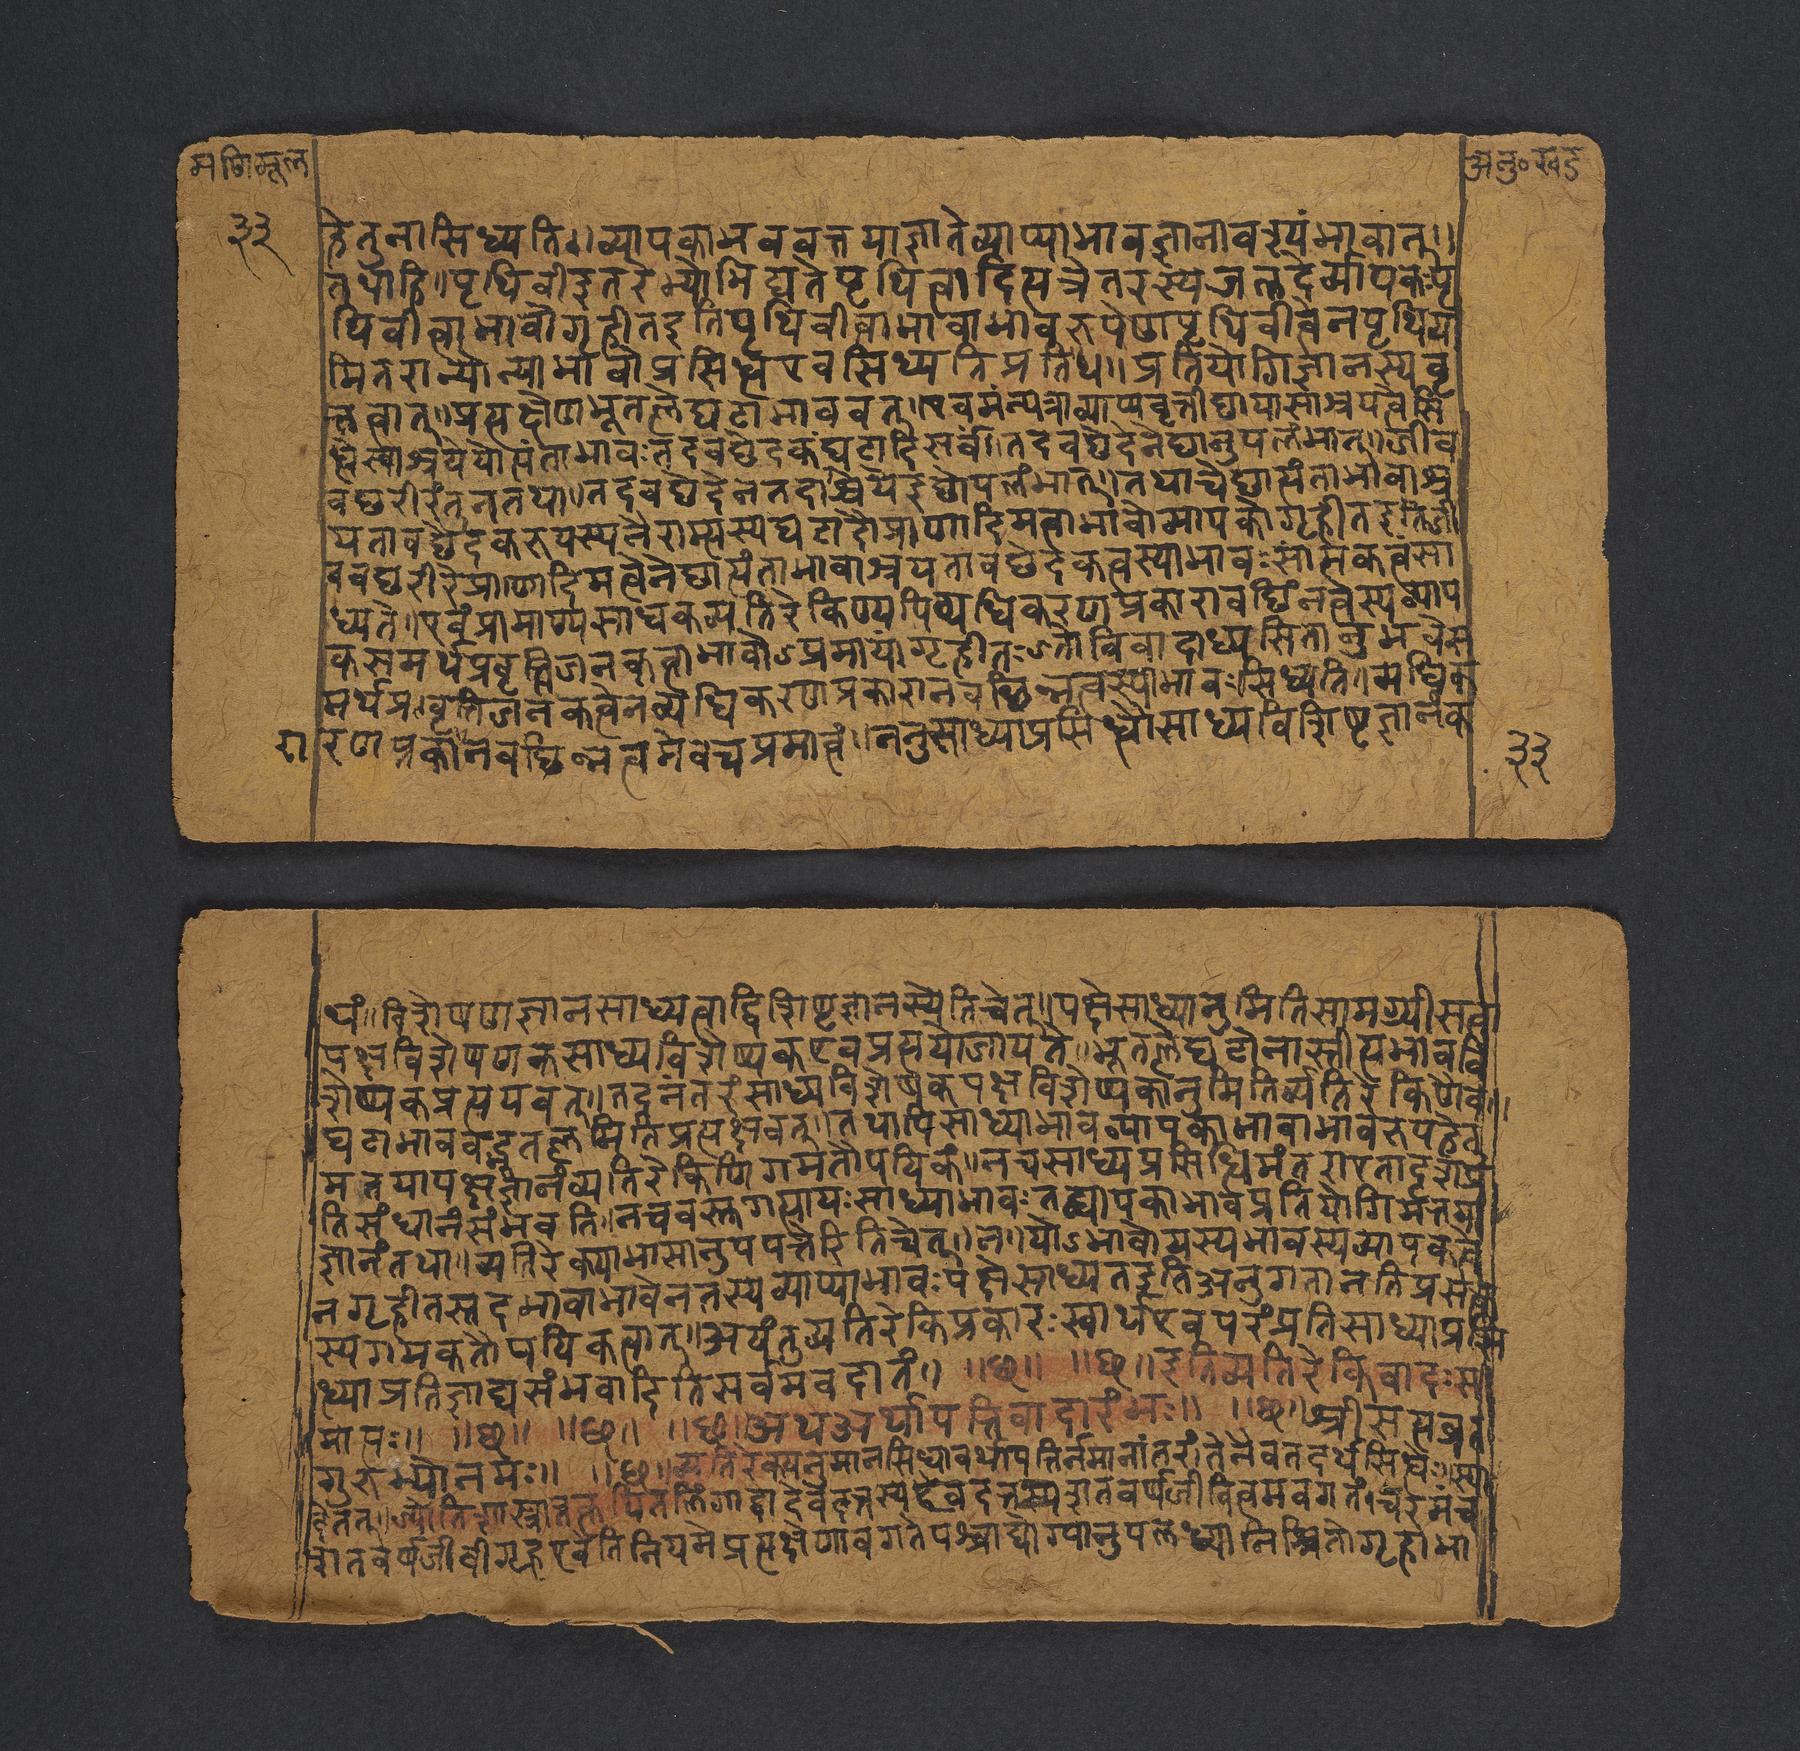 मणिमूल
अनु॰खंड
३३
हेतुनासिध्यति॥व्यापकाभाववत्तयाज्ञातेव्याप्याभावज्ञानावश्यंभावात्॥
तथाहि॥पृथिवीइतरेभ्योभिद्यतेपृथिवीत्वादित्यत्रेतरस्यजलादेर्व्यापकःपृ
थिवीत्वाभावोगृहीतइतिपृथिवीत्वाभावाभावरूपेणपृथिवीत्वेनपृथिव्या
मितरान्योन्याभावोप्रसिद्धएवसिध्यतिप्रतिय॥प्रतियोगिज्ञानस्यवृ
त्तत्वात्॥प्रत्यक्षेणभूतलेघटाभाववत्॥एवमन्यत्राव्याप्यवृत्तीच्छायासाश्रयत्वेसि
द्धेस्वाश्रयेयोत्यंताभावःतदवछेदकंघटादिसर्वं॥तदवछेदेनेछानुपलंभात्॥जीव
वछरीरंतनतथा॥तदवछेदेनतदाश्रयेइछोपलंभात्॥तथाचेछात्यंताभावाश्र
यतावछेदकरूपस्यनैरात्म्यस्यघटादौप्राणादिमत्वाभावोव्यापकोगृहीतइतिजी
ववछरीरेप्राणादिमत्वेनेछात्यंताभावाश्रयतावछेदकत्वस्याभावःसात्मकत्वंसा
ध्यते॥एवंप्रामाण्यसाधकव्यतिरेकिण्यपिव्यधिकरणप्रकारावछिंनत्वस्यव्याप
कसमर्थप्रवृत्तिजनकत्वाभावोऽप्रमायांगृहीतःऽतोविवादाध्यासितोनुभवेस
मर्थप्रवृत्तिजनकत्वेनव्यधिकरणप्रकारानवछिन्नत्वस्याभावःसिध्यति॥मधिक
रणप्रकानवछिन्नत्वमेवचप्रमात्वं॥ननुसाध्याप्रसिध्धौसाध्यविशिष्टज्ञानंक
रा
३३
थं॥विशेषणज्ञानसाध्यत्वाद्विशिष्टज्ञानस्येतिचेत्॥पक्षेसाध्यानुमितिसामग्र्यीसत्वा
पक्षविशेषणकसाध्यविशेष्यकएवप्रत्ययोजायते॥भूतलेघटोनास्तीत्यभाववि
शेष्यकप्रत्ययवत्॥तदनंतरंसाध्यविशेषकपक्षविशेष्यकानुमितिर्व्यतिरेकिणैव॥
घटाभाववद्भूतलमितिप्रत्यक्षवत्॥तथापिसाध्याभावव्यापकाभावाभावरूपहेतु
मतयापक्षज्ञानंव्यतिरेकिणिगमतौपयिकं॥नचसाध्यप्रसिध्धिमंतराएतादृशप्र
तिसंधानंसंभवति॥नचवस्तगत्यायःसाध्याभावःतद्व्यापकाभावप्रतियोगिमत्तया
ज्ञानंतथा॥व्यतिरेक्याभासानुपपत्तेरितिचेत्॥न॥योऽभावोयस्यभावस्यव्यापकत्वे
नगृहीतस्तदभावाभावेनतस्यव्याप्याभावःपक्षेसाध्यतइतिअनुगतानतिप्रसक्त
स्यगमकतौपयिकत्वात्॥अयंतुव्यतिरेकिप्रकारःस्वार्थएवपरंप्रतिसाध्याप्रसि
ध्याप्रतिज्ञाद्यसंभवादितिसर्वमवदातं॥ ॥छ॥ ॥छ॥इतिव्यतिरेकिवादःस
माप्तः॥ ॥छ॥ ॥छ॥ ॥छ॥अथअर्थापत्तिवादारंभः॥ ॥छ॥श्रीसत्यव्रत
गुरुभ्योनमः॥ ॥छ॥व्यतिरेक्यनुमानसिध्धावर्थापत्तिर्नमानांतरं॥तेनैवतदर्थसिध्धेः॥स्या
देतत्॥ज्योतिशास्त्रातत्कथितलिंगाद्वादेवदत्तस्यशतवर्षजीवित्वमवगतं॥चरमंच
शतवर्षजीवीगृहएवेतिनियमेप्रत्यक्षेणावगतेपश्चाद्योग्यानुपलध्यानिश्चितोगृहाभा